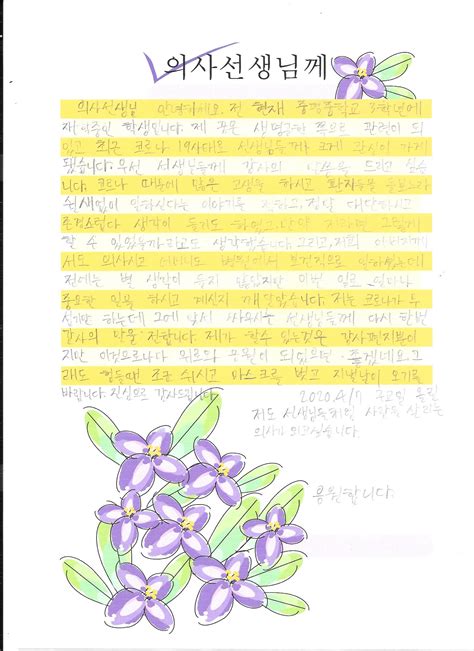 의사선생님께
의사선생님 안녕하세요. 전 현재 중학교 3학년에
재학중인 학생입니다. 제 꿈은 생명공학 쪽으로 관련이 되
있고 최근 코로나 19사태로 선생님들께 크게 관심이 가게
됐습니다. 우선 선생님들께 감사의 말씀을 드리고 싶습
니다. 코로나 때문에 많은 고생을 하시고 환자들을 돌보느라
쉴새없이 일하신다는 이야기를 접하고, 정말 대단하시고
존경스럽다 생각이 들기도 하였고, 만약 저라면 그렇게
할 수 있었을까라고도 생각했습니다. 그리고, 저희 아버지께
서도 의사시고 어머니도 병원에서 일하셨는데
전에는 별 생각이 들지 않았지만 이번 일로 얼마나
중요한 일을 하시고 계신지 깨달았습니다. 저는 코로나가 무
섭기만 하는데 그에 맞서 싸우시는 선생님들께 다시 한번
감사의 말을 전합니다. 제가 할수 있는것은 감사편지뿐이
지만 이것으로나마 위로와 응원이 되었으면 좋겠네요. 그
래도 힘들때 조금 쉬시고 마스크를 벗고 지낼날이 오기를
바랍니다. 진심으로 감사드립니다.
2020. 4/17 금요일 올림
저도 선생님들처럼 사람을 살리는
의사가 되고싶습니다.
응원합니다.